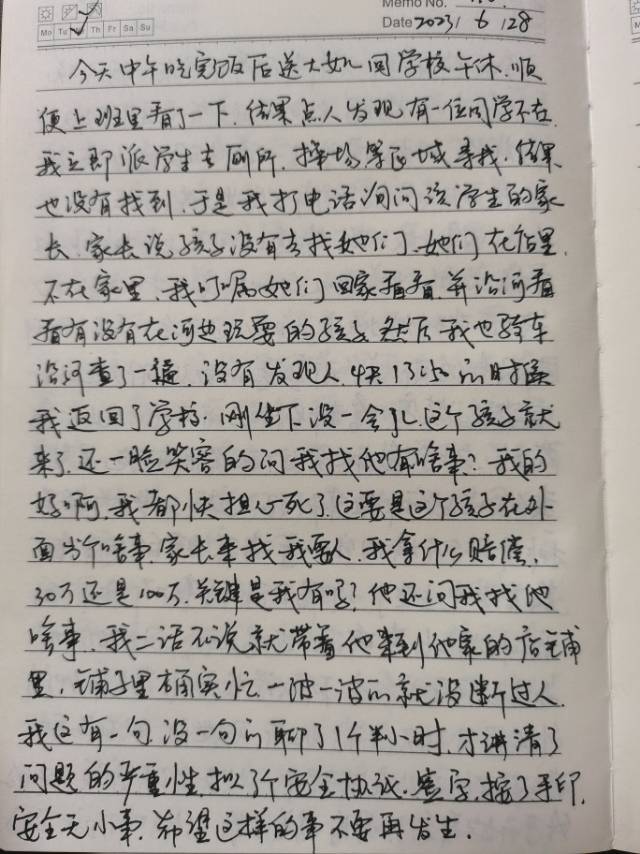 Memo No.
Mo Tu Th Fr Sa Su
Date 2023/ 6 /28
今天中午吃完饭后送大女儿回学校午休.顺
便上班里看了一下.结果点人发现有一位同学不在
我立即派学生去厕所.操场等区域寻找.结果
也没有找到.于是我打电话询问该学生的家
长.家长说孩子没有去找她们.她们在店里.
不在家里.我叮嘱她们回家看看.并沿河看
看有没有在河边玩耍的孩子.然后我也骑车
沿河查了一遍.没有发现人.快13:50的时候
我返回了学校.刚坐下没一会儿.这个孩子就
来了.还一脸笑容的问我找他有啥事?我的
好啊.我都快担心死了.这要是这个孩子在外
面出个啥事.家长来找我要人.我拿什么赔偿.
30万还是100万.关键是我有吗?他还问我找他
啥事.我二话不说就带着他来到他家的店铺
里.铺子里确实忙.一波一波的就没断过人.
我这有一句.没一句的聊了1个半小时.才讲清了
问题的严重性.拟了个安全协议.签字.按了手印.
安全无小事.希望这样的事不要再发生.